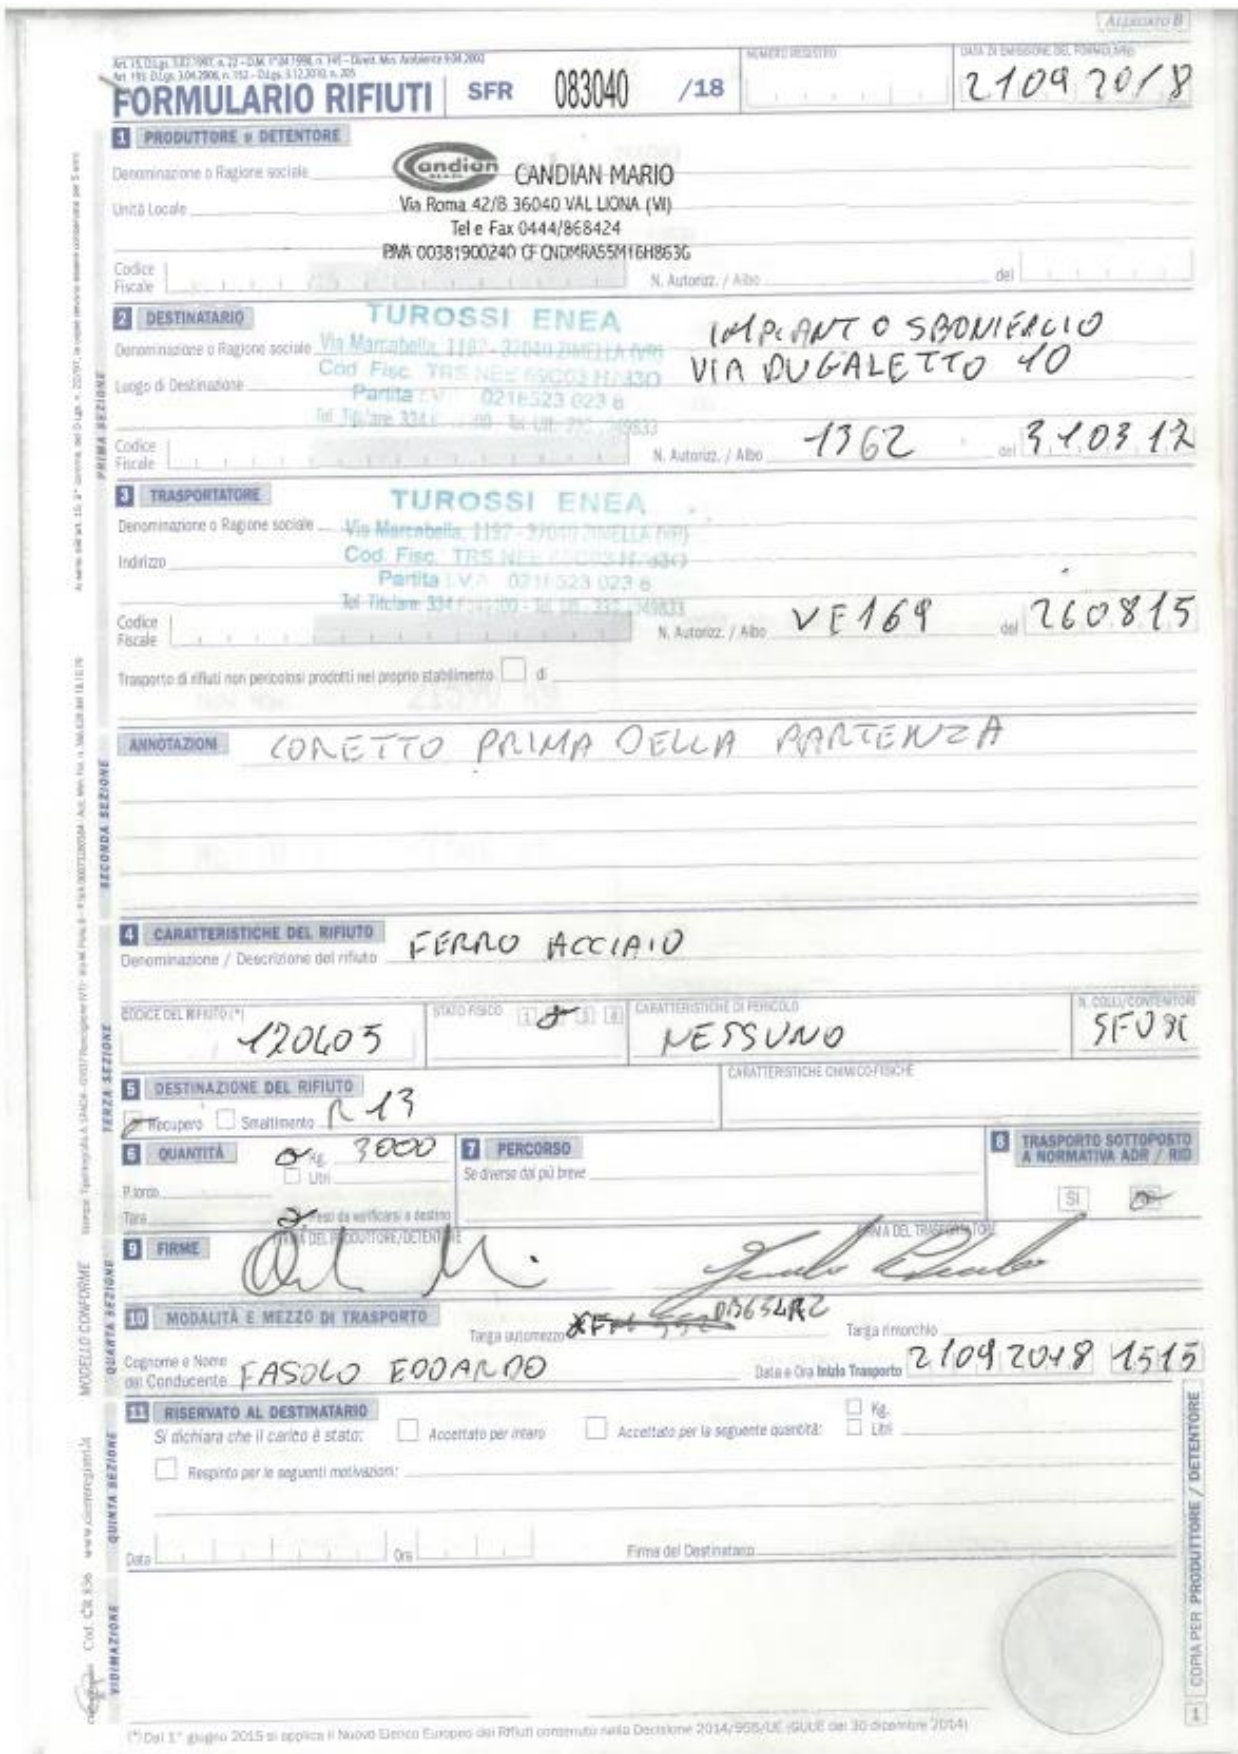 ALLEGATO B
Art. 15, D.Lgs. 5.02.1997, n. 22 - D.M. 1°.04.1998, n. 145 - Dirett. Min. Ambiente 9.04.2002
Art. 193 D.Lgs. 3.04.2006, n. 152 - D.Lgs. 3.12.2010, n. 205
FORMULARIO RIFIUTI SFR 083040 /18
NUMERO REGISTRO
DATA DI EMISSIONE DEL FORMULARIO
21092018
1 PRODUTTORE o DETENTORE
Denominazione o Ragione sociale
Candian
CANDIAN MARIO
Unità Locale
Via Roma 42/B 36040 VAL LIONA (VI)
Tel e Fax 0444/868424
P.IVA 00381900240 CF CNDMRA55M16H863G
Codice Fiscale
N. Autorizz. / Albo
del
2 DESTINATARIO
TUROSSI ENEA
IMPIANTO SBONIFACIO
Denominazione o Ragione sociale
Via Marcabella, 1197 - 37040 ZIMELLA (VR)
VIA DUGALETTO 10
Luogo di Destinazione
Cod. Fisc. TRS NEE
Partita I.V.A. 0218523 023 8
Codice Fiscale
N. Autorizz. / Albo 1362 del 310312
3 TRASPORTATORE
TUROSSI ENEA
Denominazione o Ragione sociale
Via Marcabella, 1197 - 37040 ZIMELLA (VR)
Indirizzo
Cod. Fisc. TRS NEE
Partita I.V.A. 0218523 023 8
Codice Fiscale
N. Autorizz. / Albo VE169 del 260815
Trasporto di rifiuti non pericolosi prodotti nel proprio stabilimento di
ANNOTAZIONI CORETTO PRIMA DELLA PARTENZA
4 CARATTERISTICHE DEL RIFIUTO
Denominazione / Descrizione del rifiuto FERRO ACCIAIO
CODICE DEL RIFIUTO (*)
120405
STATO FISICO 1 3 4
CARATTERISTICHE DI PERICOLO
NESSUNO
N. COLLI/CONTENITORI
5 DESTINAZIONE DEL RIFIUTO
Recupero Smaltimento R 13
CARATTERISTICHE CHIMICO-FISICHE
6 QUANTITÀ
Kg. 3000
Litri
P. lordo
Tara
Peso da verificarsi a destino
7 PERCORSO
Se diverso dal più breve
8 TRASPORTO SOTTOPOSTO A NORMATIVA ADR / RID
SI
9 FIRME
FIRMA DEL PRODUTTORE/DETENTORE
FIRMA DEL TRASPORTATORE
10 MODALITÀ E MEZZO DI TRASPORTO
Targa automezzo
Targa rimorchio
Cognome e Nome del Conducente FASOLO EDOARDO
Data e Ora Inizio Trasporto 21092018 1515
11 RISERVATO AL DESTINATARIO
Si dichiara che il carico è stato:
Accettato per intero
Accettato per la seguente quantità:
Kg.
Litri
Respinto per le seguenti motivazioni:
Data
Ora
Firma del Destinatario
(*) Dal 1° giugno 2015 si applica il Nuovo Elenco Europeo dei Rifiuti contenuto nella Decisione 2014/955/UE (GUUE del 30 dicembre 2014)
PRIMA SEZIONE
SECONDA SEZIONE
TERZA SEZIONE
QUARTA SEZIONE
QUINTA SEZIONE
VIDIMAZIONE
MODELLO CONFORME
1 COPIA PER PRODUTTORE / DETENTORE